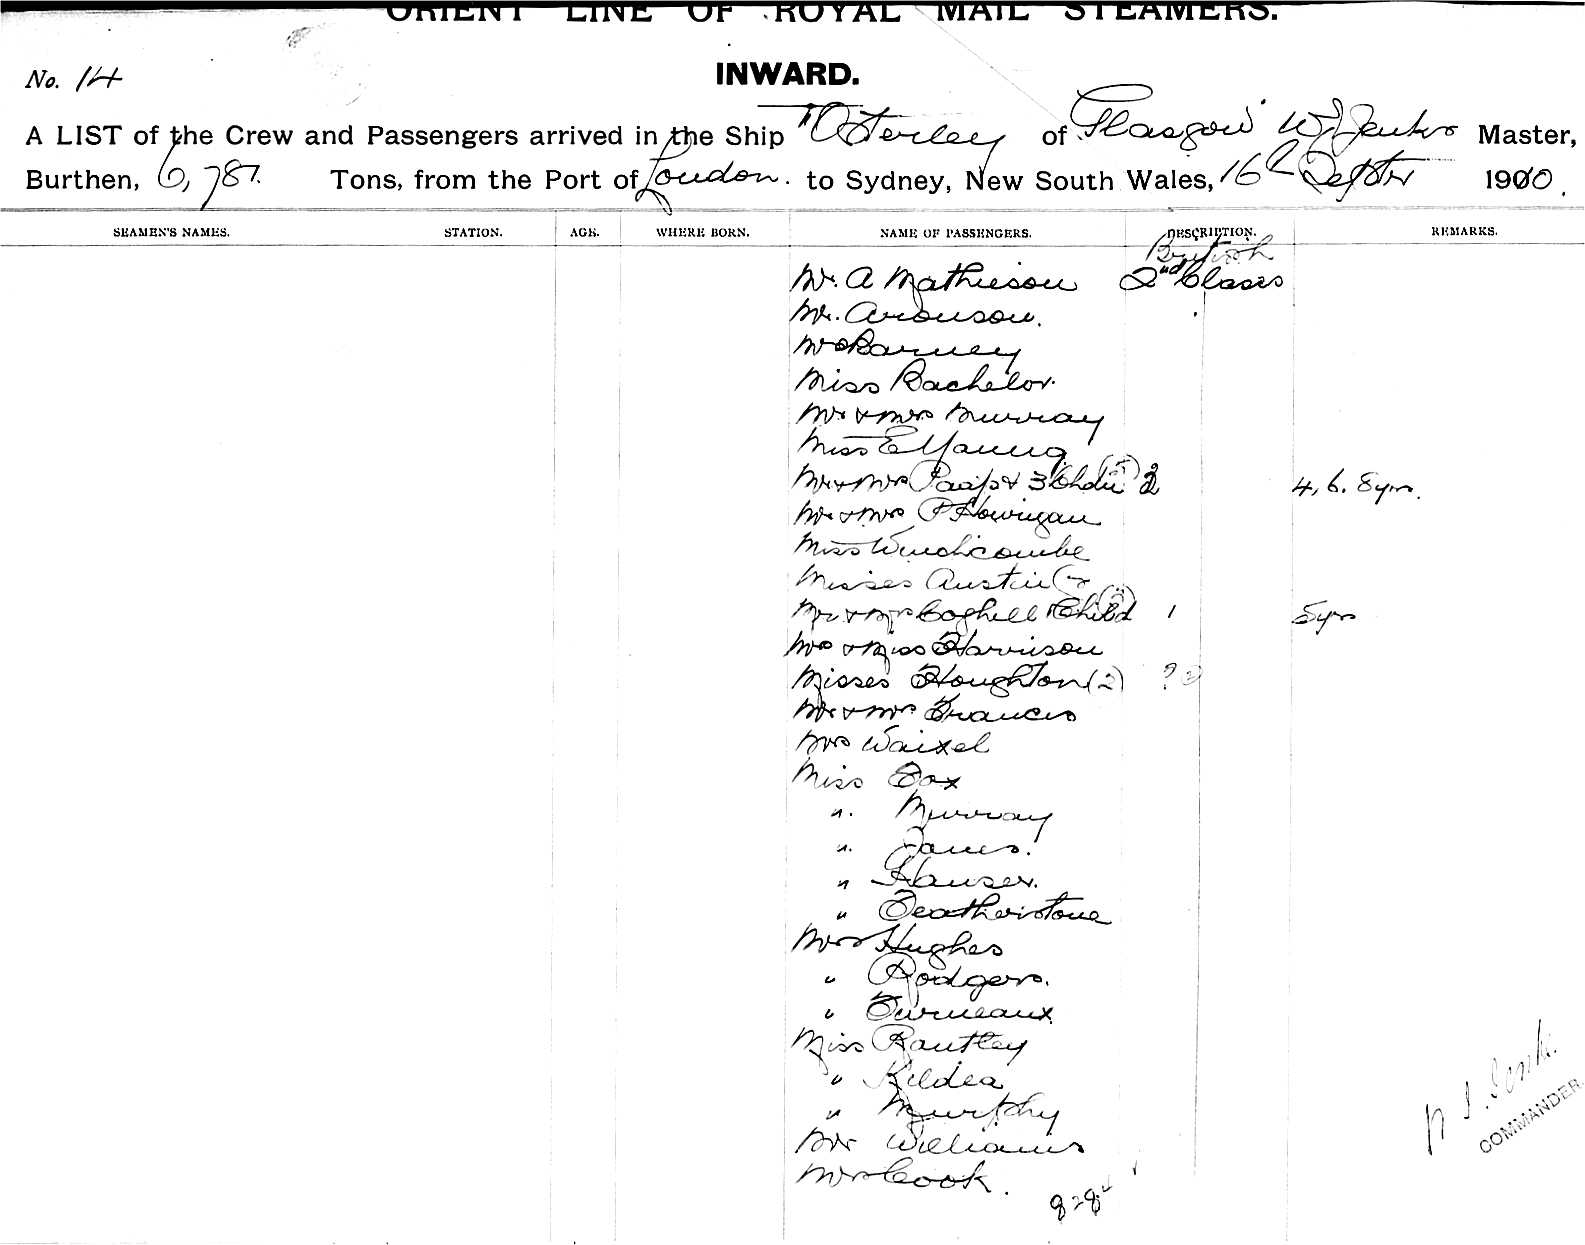 ORIENT LINE OF ROYAL MAIL STEAMERS.
No. 14
INWARD.
A LIST of the Crew and Passengers arrived in the Ship "Osterley of Glasgow W J Jenks Master,
Burthen, 6,781. Tons, from the Port of London. to Sydney, New South Wales, 16th Septbr 1910.
SEAMEN'S NAMES. STATION. AGE. WHERE BORN. NAME OF PASSENGERS. DESCRIPTION. REMARKS.
British
Mr. A Mathieson 2nd Class
Mr. Aronson.
Mrs Barney
Miss Bachelor.
Mr & Mrs Murray
Miss E Young
Mr & Mrs Paap & 3 Chdn 3 4, 6. 8 yrs.
Mr & Mrs P Howigan
Miss Winchcombe
Misses Austin (2
Mr & Mrs Coghell Child 1 5 yrs
Mrs & Miss Harrison
Misses Houghton (2) ? 2
Mr & Mrs Francis
Mrs Waixel
Miss Fox
". Murray
". James.
" Hauser.
" Featherstone
Mrs Hughes
" Rodgers.
" Furneaux
Miss Rantley
" Kildea
" Murphy
Mr Williams
Mrs Cook.
828
COMMANDER.